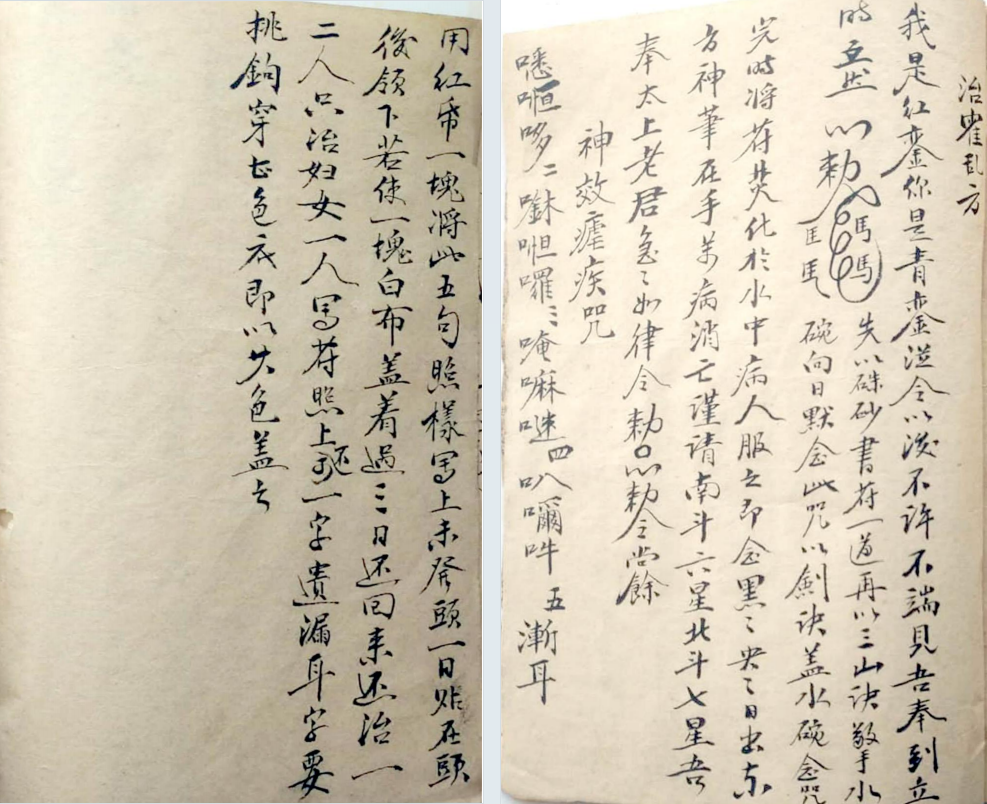 治霍乱方
我是红銮你是青銮滋令以後不许不端見吾奉到立
時立然 以勅 馬馬
先以硃砂書苻一道再以三山訣敬手水
碗向日默念此咒以劍诀盖水碗念咒
完時将苻焚化於水中病人服之即念黑〻央〻日出东
方神筆在手万病消亡谨请南斗六星北斗七星吾
奉太上老君急〻如律令勅 以勅令尝餘
神效瘧疾咒
嚜咀哆二 咀囉三唵嘛 四叭嚩吽 五漸耳
用红希一塊将此五句照樣写上未發頭一日贴在頭
後领下若使一塊白布盖着过三日还回来还治一
二人只治妇女一人写苻照上 一字遗漏耳字要
挑鉤穿七色衣即以大色盖之